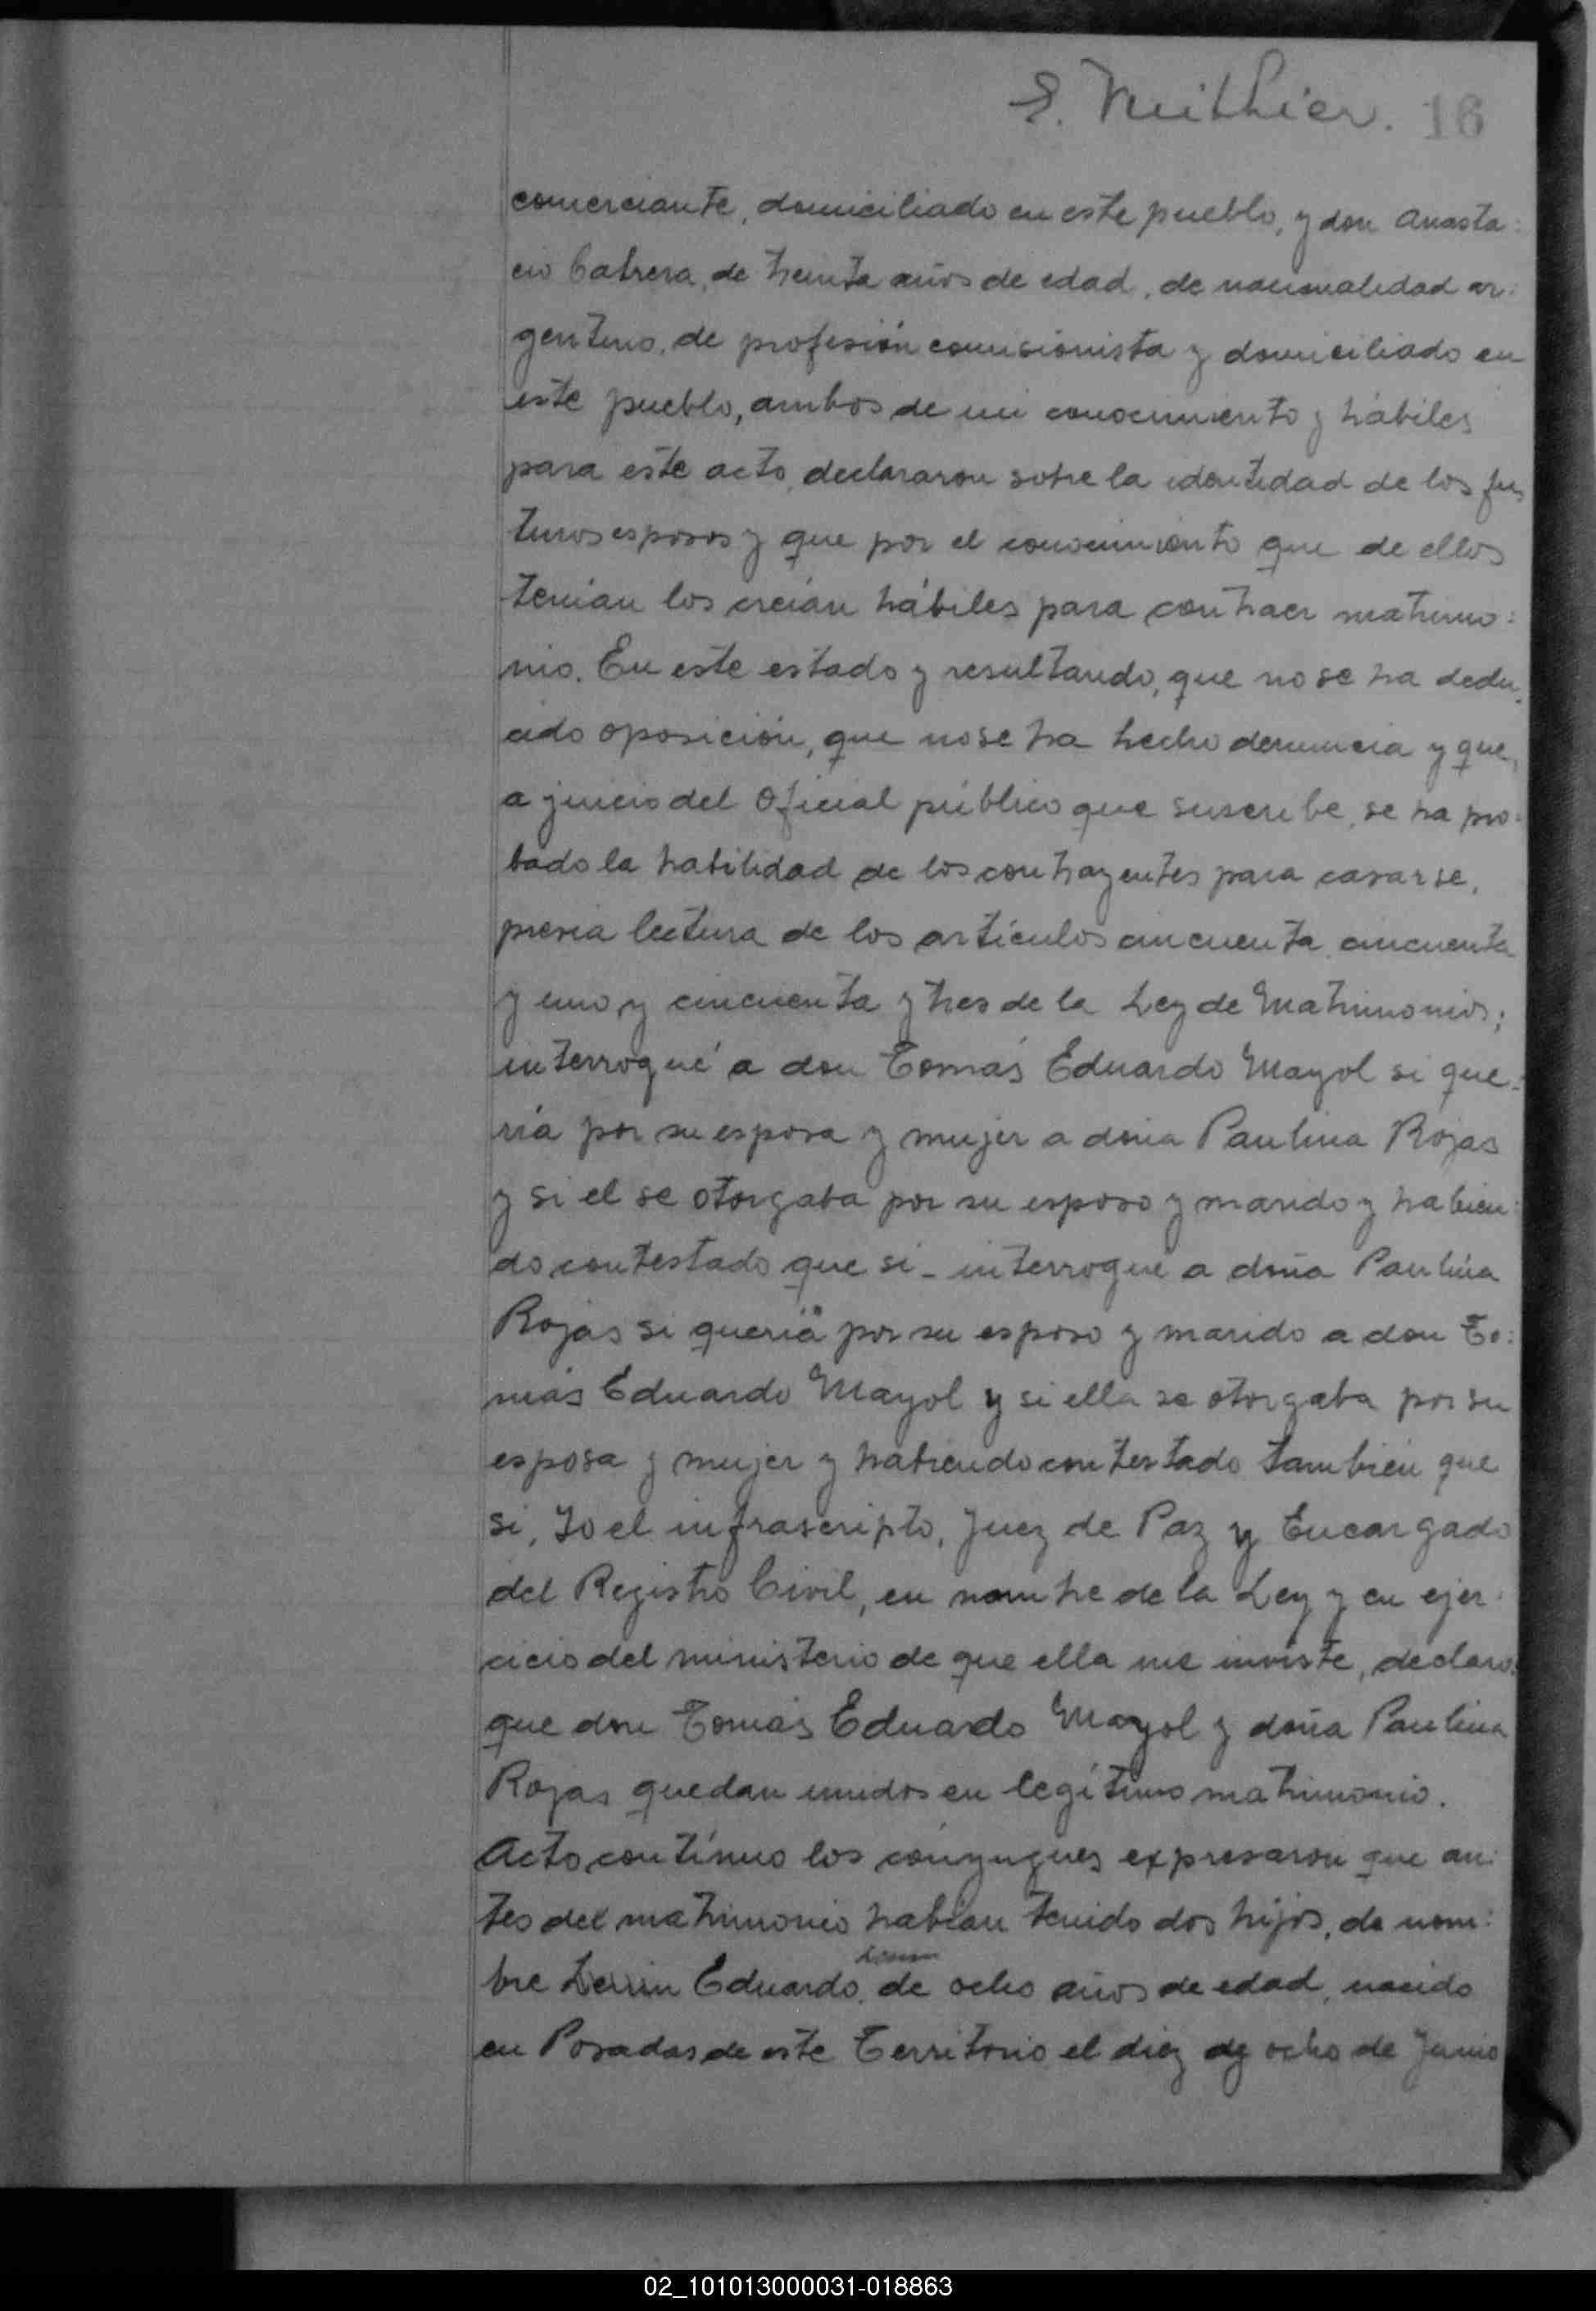 E. Muithier. 16
comerciante, domiciliado en este pueblo, y don Anasta:
cio Cabrera, de treinta años de edad, de nacionalidad ar:
gentino, de profesión comisionista y domiciliado en
este pueblo, ambos de mi conocimiento y hábiles
para este acto, declararon sobre la identidad de los fu
turos esposos y que por el conocimiento que de ellos
tenían los creían hábiles para contraer matrimo:
nio. En este estado y resultando, que no se ha dedu
cido oposición, que no se ha hecho denuncia y que,
a juicio del Oficial público que suscribe, se ha pro:
bado la habilidad de los contrayentes para casarse,
previa lectura de los artículos cincuenta, cincuenta
y uno y cincuenta y tres de la Ley de Matrimonios;
interrogué a don Tomás Eduardo Mayol si que:
ría por su esposa y mujer a doña Paulina Rojas
y si el se otorgaba por su esposo y marido y habien:
do contestado que si - interrogué a doña Paulina
Rojas si quería por su esposo y marido a don To:
más Eduardo Mayol y si ella se otorgaba por su
esposa y mujer y habiendo contestado también que
si, Yo el infrascripto, Juez de Paz y Encargado
del Registro Civil, en nombre de la Ley y en ejer:
cicio del ministerio de que ella me inviste, declaro:
que don Tomás Eduardo Mayol y doña Paulina
Rojas quedan unidos en legítimo matrimonio.
Acto contínuo los cónyugues expresaron que an:
tes del matrimonio habían tenido dos hijos, de nom:
bre Eduardo, de ocho años de edad, nacido
en Posadas de este Territorio el diez y ocho de Junio
02_101013000031-018863